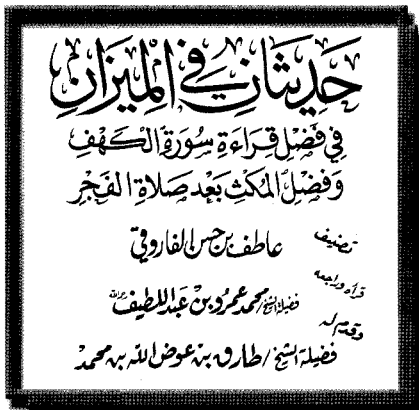 حَدِيثَانِ فِي المِيزَانِ
فِي فَضْلِ قِرَاءَةِ سُورَةِ الكَهْفِ
وَفَضْلِ المُكْثِ بَعْدَ صَلَاةِ الفَجْرِ
تصنيف
عاطف بن حسن الفاروقي
قرأه وراجعه
فضيلة الشيخ/ محمد عمرو بن عبد اللطيف
وقدم له
فضيلة الشيخ/ طارق بن عوض الله بن محمد